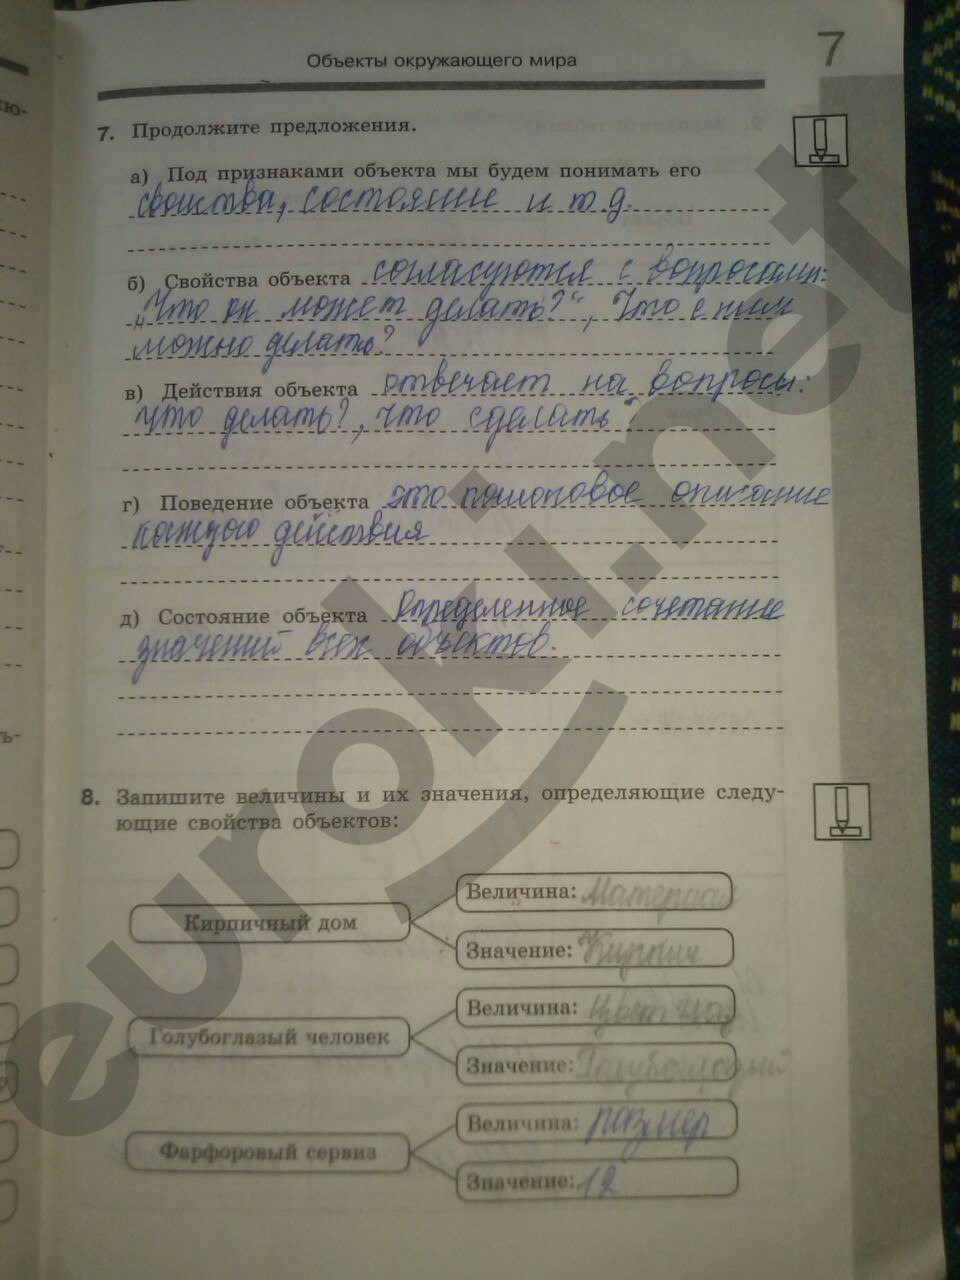 Объекты окружающего мира
7
7. Продолжите предложения.
а) Под признаками объекта мы будем понимать его
свойства, состояние и т.д.
б) Свойства объекта согласуются с вопросами:
„Что он может делать?“, Что с ним
можно делать?
в) Действия объекта отвечает на вопросы:
что делать?, что сделать?
г) Поведение объекта это пошаговое описание
каждого действия
д) Состояние объекта Определенное сочетание
значений всех объектов.
8. Запишите величины и их значения, определяющие следу-
ющие свойства объектов:
Кирпичный дом
Величина: Материал
Значение: Кирпич
Голубоглазый человек
Величина: Цвет глаз
Значение:
Фарфоровый сервиз
Величина: размер
Значение: 12
euroki.net